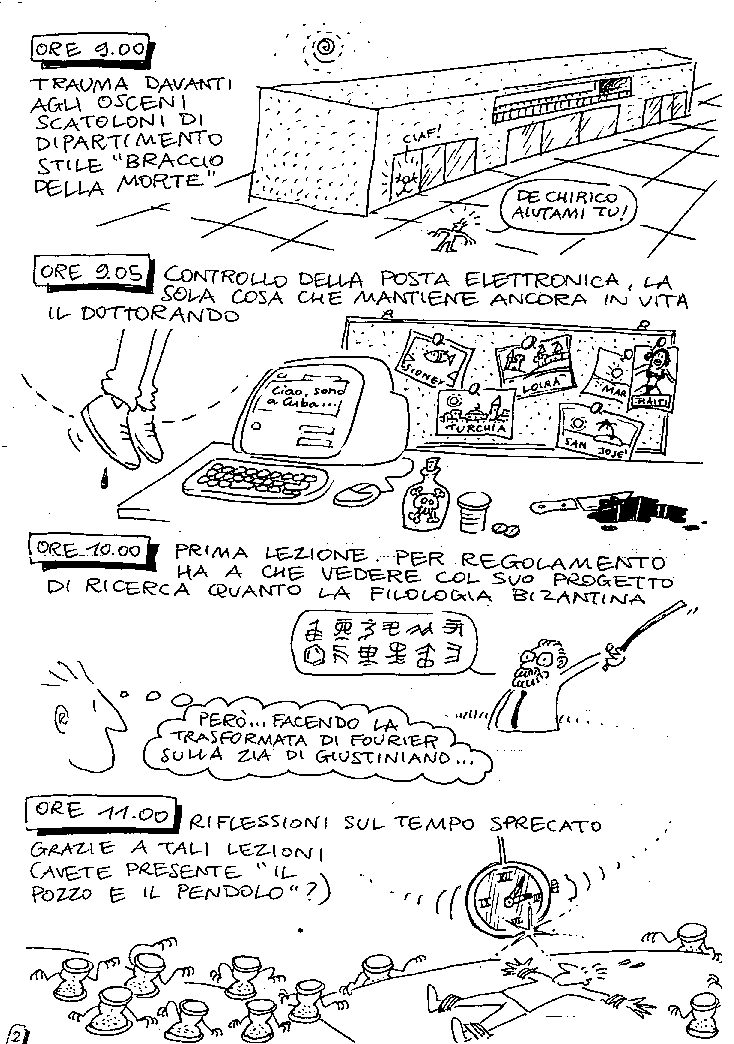 ORE 9.00
TRAUMA DAVANTI
AGLI OSCENI
SCATOLONI DI
DIPARTIMENTO
STILE "BRACCIO
DELLA MORTE"
CIAF!
DE CHIRICO
AIUTAMI TU!
ORE 9.05
CONTROLLO DELLA POSTA ELETTRONICA, LA
SOLA COSA CHE MANTIENE ANCORA IN VITA
IL DOTTORANDO
Ciao, sono
a Cuba...
SIDNEY
LOIRA
MAR
HAITI
TURCHIA
SAN JOSE'
ORE 10.00
PRIMA LEZIONE. PER REGOLAMENTO
HA A CHE VEDERE COL SUO PROGETTO
DI RICERCA QUANTO LA FILOLOGIA BIZANTINA
PERÒ... FACENDO LA
TRASFORMATA DI FOURIER
SULLA ZIA DI GIUSTINIANO...
ORE 11.00
RIFLESSIONI SUL TEMPO SPRECATO
GRAZIE A TALI LEZIONI
(AVETE PRESENTE "IL
POZZO E IL PENDOLO"?)
XII
III
VI
IX
2